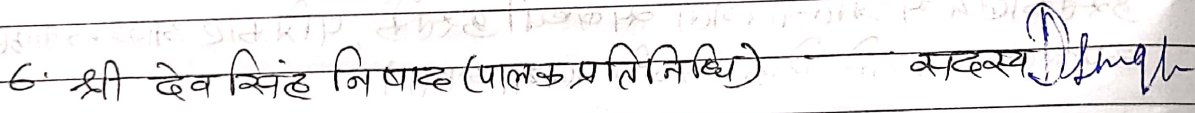 6. श्री देव सिंह निषाद (पालक प्रतिनिधि) सदस्य